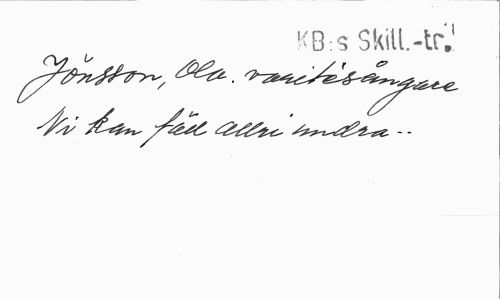 KB:s Skill.-tr.
Jönsson, Ola. varitésångare
Ni kan fäll allri undra--